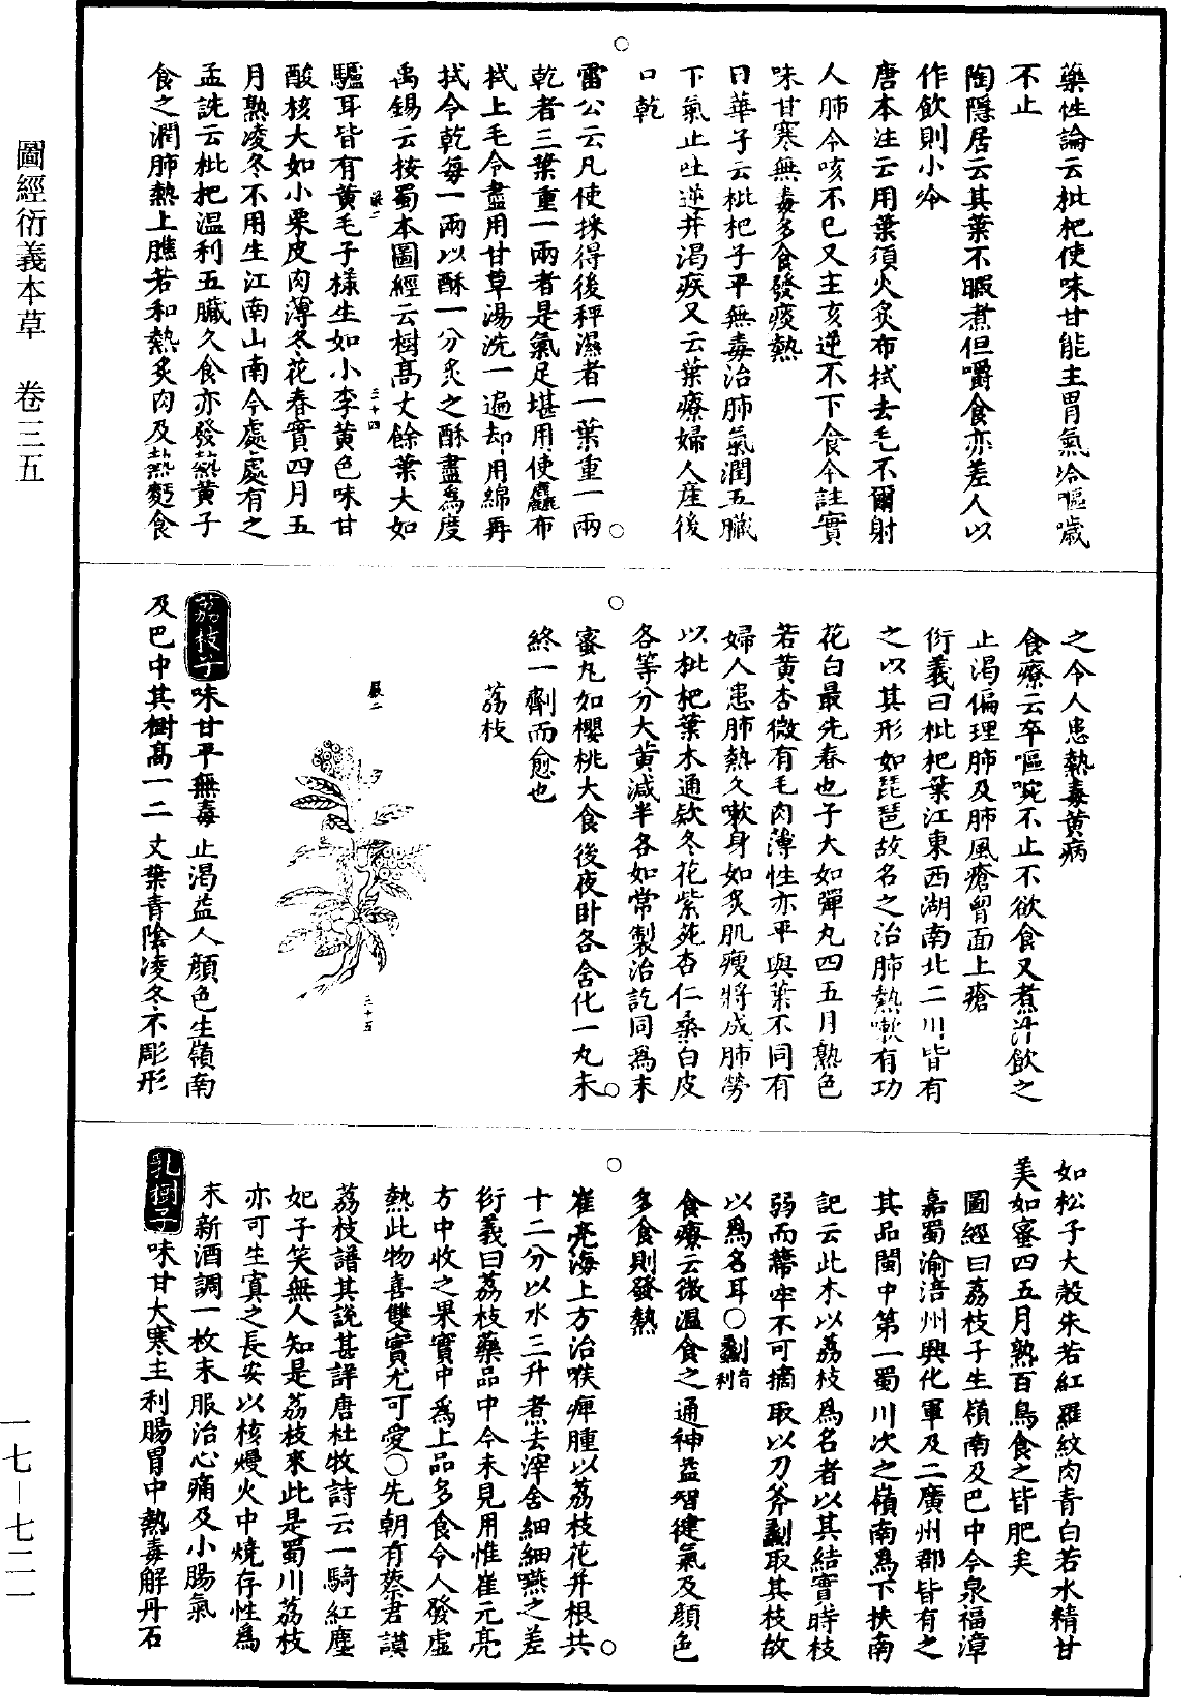 圖經衍義本草　卷三五
藥性論云枇杷使味甘能主胃氣冷嘔噦
不止
陶隱居云其葉不暇煮但嚼食亦差人以
作飲則小冷
唐本注云用葉須火炙布拭去毛不爾射
人肺令咳不已又主亥逆不下食今註實
味甘寒無毒多食發痰熱
日華子云枇杷子平無毒治肺氣潤五臟
下氣止吐逆并渴疾又云葉療婦人產後
口乾
雷公云凡使採得後秤濕者一葉重一兩
乾者三葉重一兩者是氣足堪用使麤布
拭上毛令盡用甘草湯洗一遍却用綿再
拭令乾每一兩以酥一分炙之酥盡為度
禹錫云按蜀本圖經云樹高丈餘葉大如
三十四
驢耳皆有黃毛子樣生如小李黃色味甘
酸核大如小栗皮肉薄冬花春實四月五
月熟凌冬不用生江南山南今處處有之
孟詵云枇杷溫利五臟久食亦發熱黃子
食之潤肺熱上膲若和熱炙肉及熱麪食
之令人患熱毒黃病
食療云卒嘔啘不止不欲食又煮汁飲之
止渴偏理肺及肺風瘡胷面上瘡
衍義曰枇杷葉江東西湖南北二川皆有
之以其形如琵琶故名之治肺熱嗽有功
花白最先春也子大如彈丸四五月熟色
若黃杏微有毛肉薄性亦平與葉不同有
婦人患肺熱久嗽身如炙肌瘦將成肺勞
以枇杷葉木通款冬花紫菀杏仁桑白皮
各等分大黃減半各如常製治訖同為末
蜜丸如櫻桃大食後夜卧各含化一丸未
終一劑而愈也
荔枝
三十五
荔枝子味甘平無毒止渴益人顏色生嶺南
及巴中其樹高一二丈葉青陰凌冬不彫形
如松子大殼朱若紅羅紋肉青白若水精甘
美如蜜四五月熟百鳥食之皆肥矣
圖經曰荔枝子生嶺南及巴中今泉福漳
嘉蜀渝涪州興化軍及二廣州郡皆有之
其品閩中第一蜀川次之嶺南為下扶南
記云此木以荔枝為名者以其結實時枝
弱而蔕牢不可摘取以刀斧劙取其枝故
以為名耳○劙音利
食療云微溫食之通神益智健氣及顏色
多食則發熱
崔亮海上方治喉痺腫以荔枝花并根共
十二分以水三升煮去滓含細細嚥之差
衍義曰荔枝藥品中今未見用惟崔元亮
方中收之果實中為上品多食令人發虛
熱此物喜雙實尤可愛○先朝有蔡君謨
荔枝譜其說甚詳唐杜牧詩云一騎紅塵
妃子笑無人知是荔枝來此是蜀川荔枝
亦可生寘之長安以核熳火中燒存性為
末新酒調一枚末服治心痛及小腸氣
乳樹子味甘大寒主利腸胃中熱毒解丹石
一七—七二一